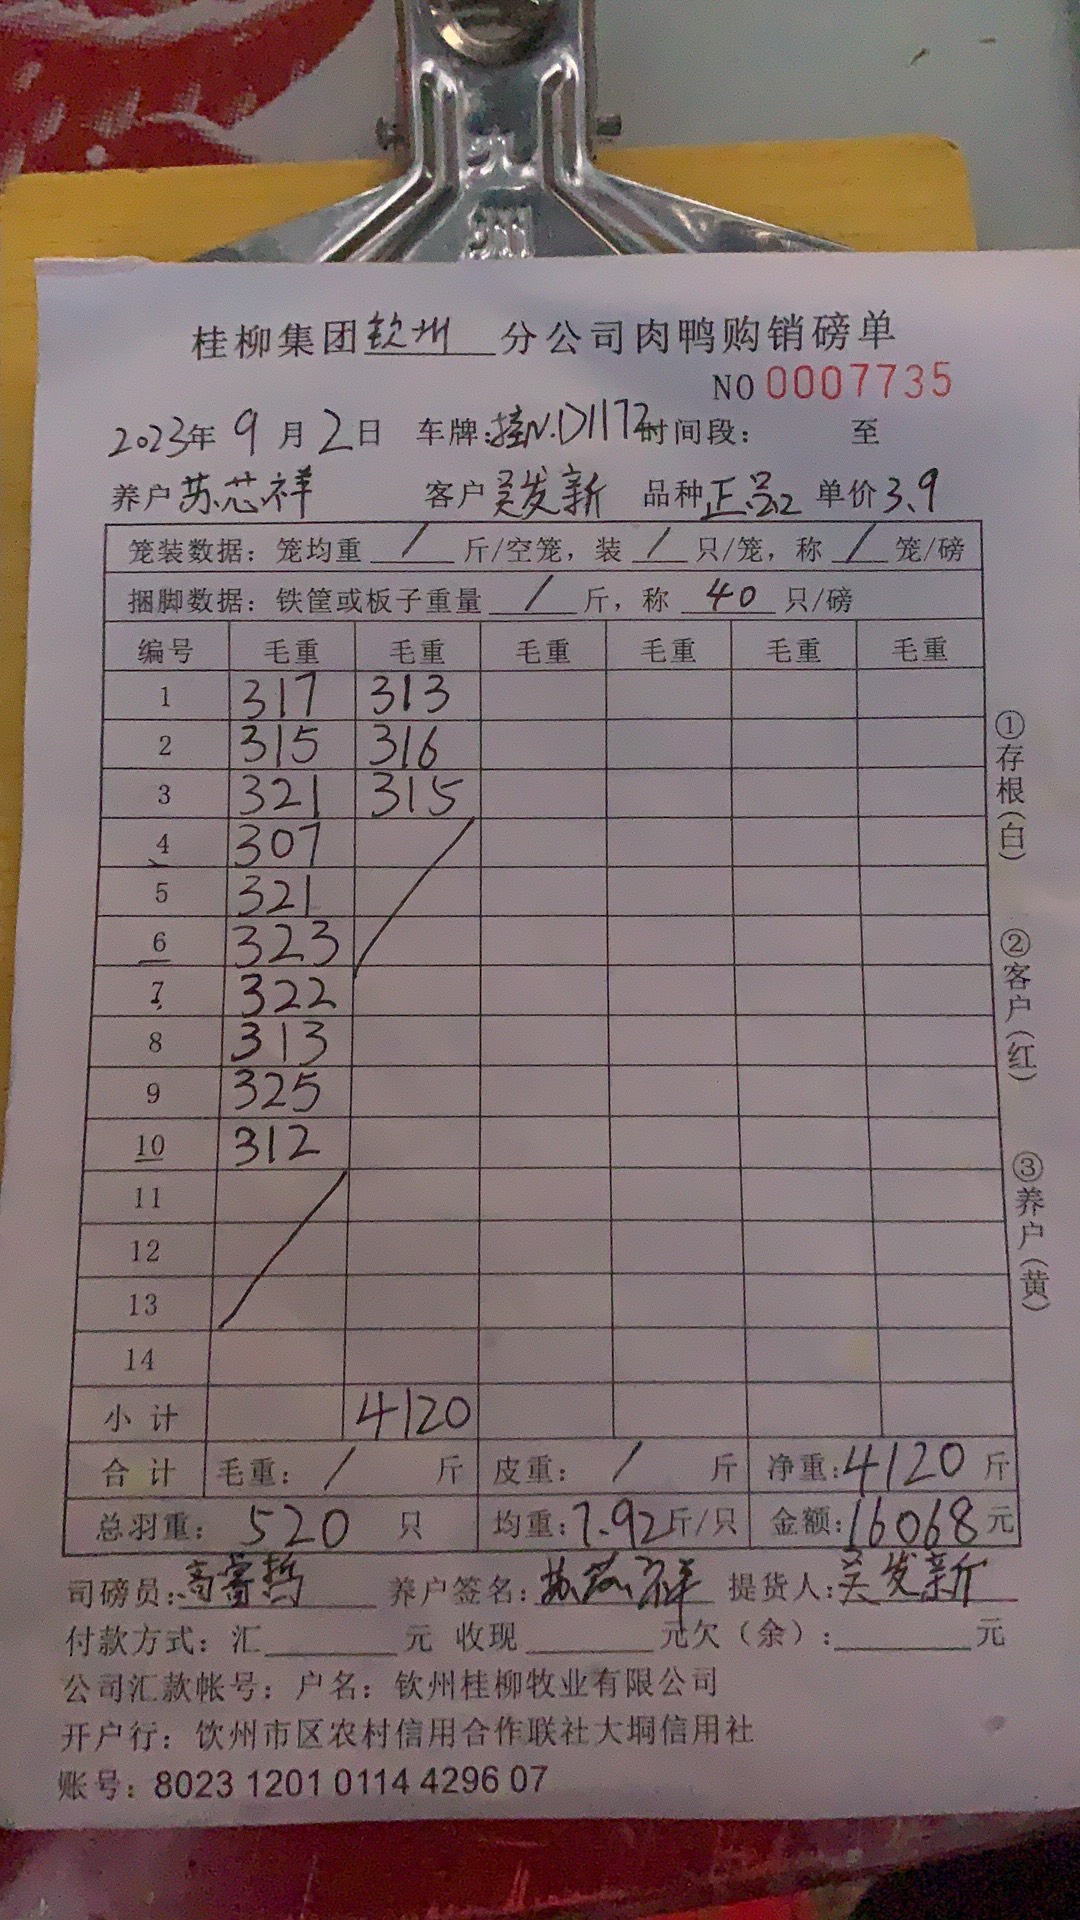 桂柳集团钦州 分公司肉鸭购销磅单
NO 0007735
2023年 9 月 2 日 车牌:桂N.D1172 时间段: 至
养户 苏芯祥 客户 吴发新 品种 正品2 单价 3.9
笼装数据: 笼均重 / 斤/空笼, 装 / 只/笼, 称 / 笼/磅
捆脚数据: 铁筐或板子重量 / 斤, 称 40 只/磅
编号 毛重 毛重 毛重 毛重 毛重 毛重
1 317 313
2 315 316
3 321 315
4 307
5 321
6 323
7 322
8 313
9 325
10 312
11
12
13
14
小计 4120
合计 毛重: / 斤 皮重: / 斤 净重: 4120 斤
总羽重: 520 只 均重: 7.92 斤/只 金额: 16068 元
司磅员: 养户签名: 苏芯祥 提货人: 吴发新
付款方式: 汇 元 收现 元欠(余): 元
公司汇款帐号: 户名: 钦州桂柳牧业有限公司
开户行: 饮州市区农村信用合作联社大垌信用社
账号: 8023 1201 0114 4296 07
①存根(白)
②客户(红)
③养户(黄)